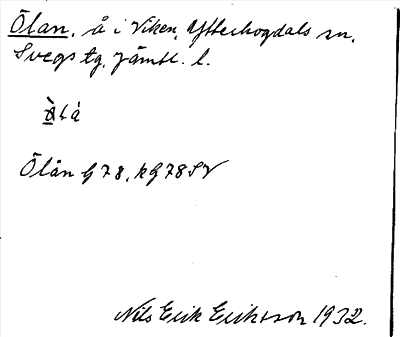 Ölan, å i Viken, Ytterhogdals sn,
Svegs tg, Jämtl. l.
Ölån G78, kG78SV
Nils Erik Eriksson 1932.